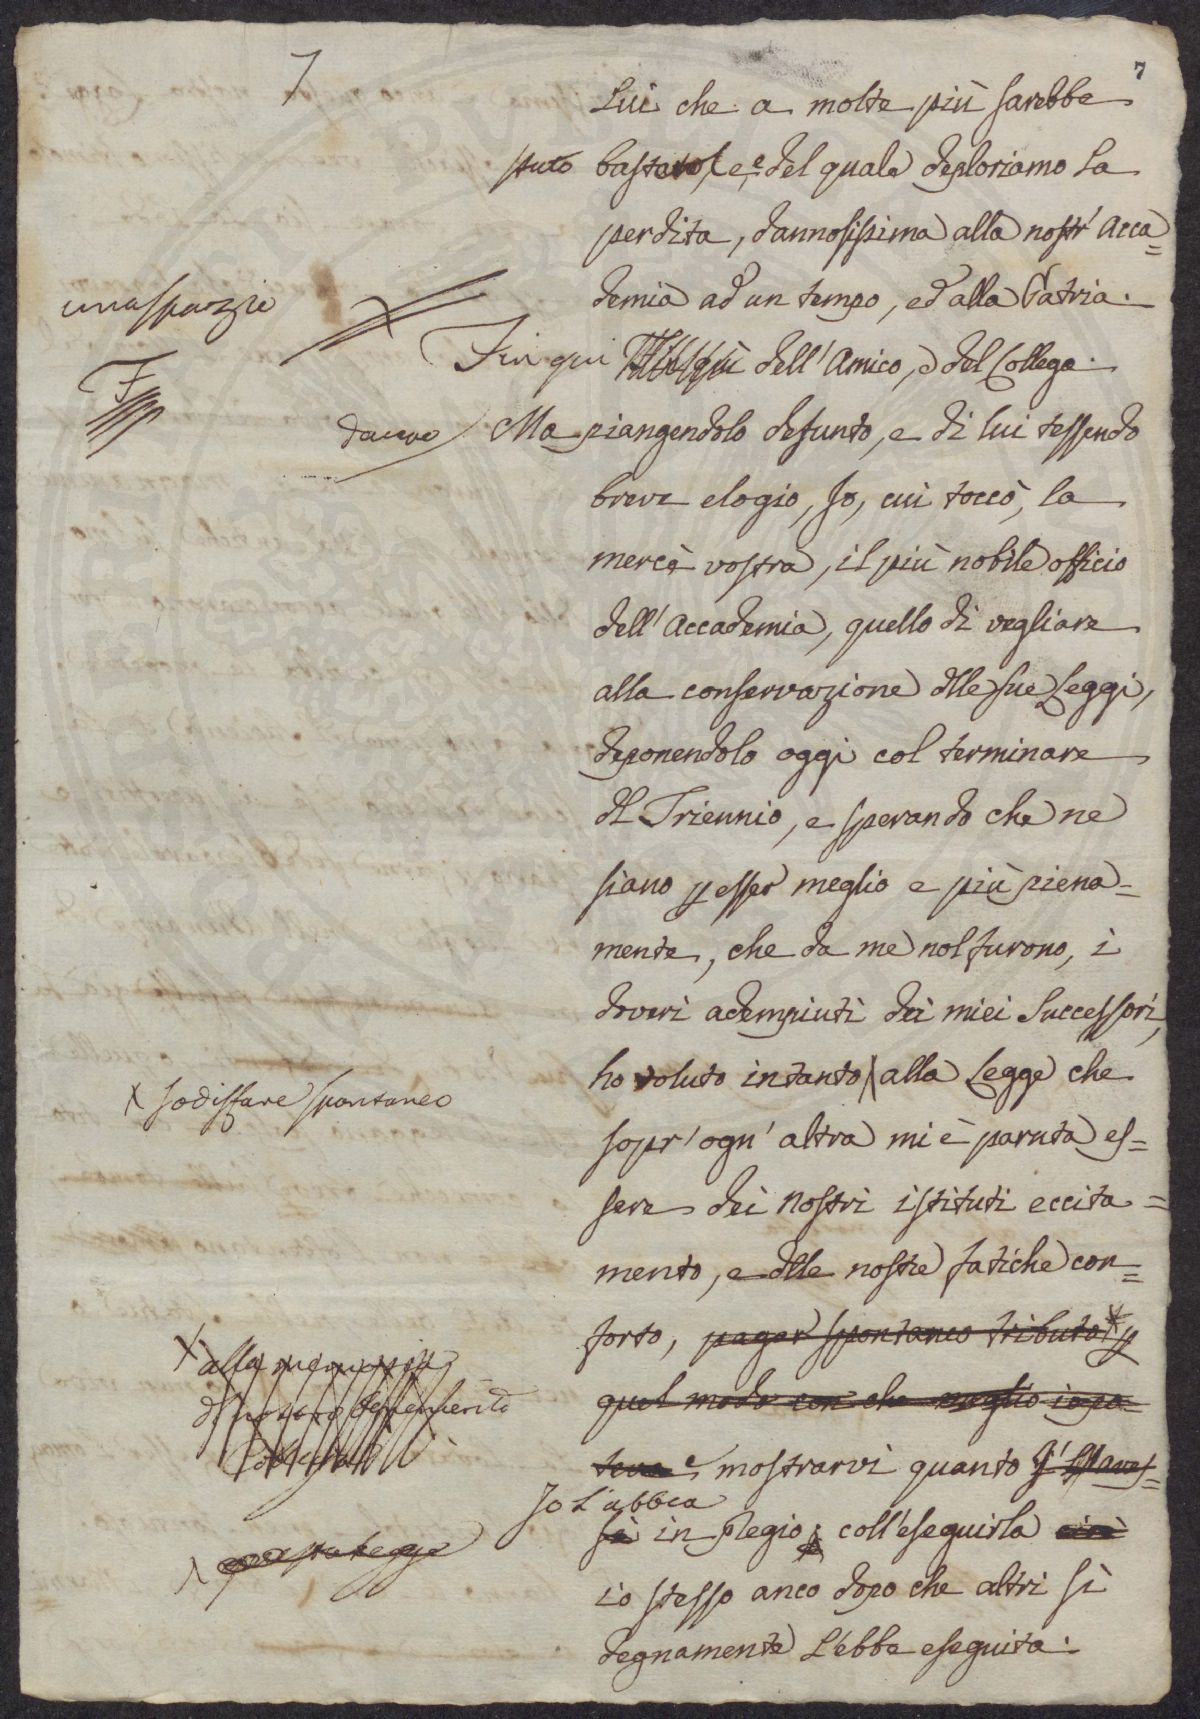 7
7
Lui che a molte più sarebbe
bastato, e del quale deploriamo la
perdita, dannosissima alla nostr' Acca=
demia ad un tempo, ed alla Patria.
Fin qui dell' Amico, e del Collega.
Ma piangendolo defunto, e di lui tessendo
breve elogio, Io, cui toccò, la
mercè vostra, il più nobile officio
dell' Accademia, quello di vegliare
alla conservazione dlle sue Leggi,
deponendolo oggi col terminare
dl Triennio, e sperando che ne
siano p esser meglio e più piena=
mente, che da me nol furono, i
doveri adempiuti dai miei Successori,
ho voluto intanto alla Legge che
X sodisfare spontaneo
sopr' ogn' altra mi è paruta es=
sere dei nostri istituti eccita=
mento, e dlle nostre fatiche con=
forto, pagar spontaneo tributo* p
X alla memoria
quel modo con che meglio io po=
teva e mostrarvi quanto
Io l'abbia
in pregio; coll'eseguirla
io stesso anco dopo che altri sì
degnamente l'ebbe eseguita.